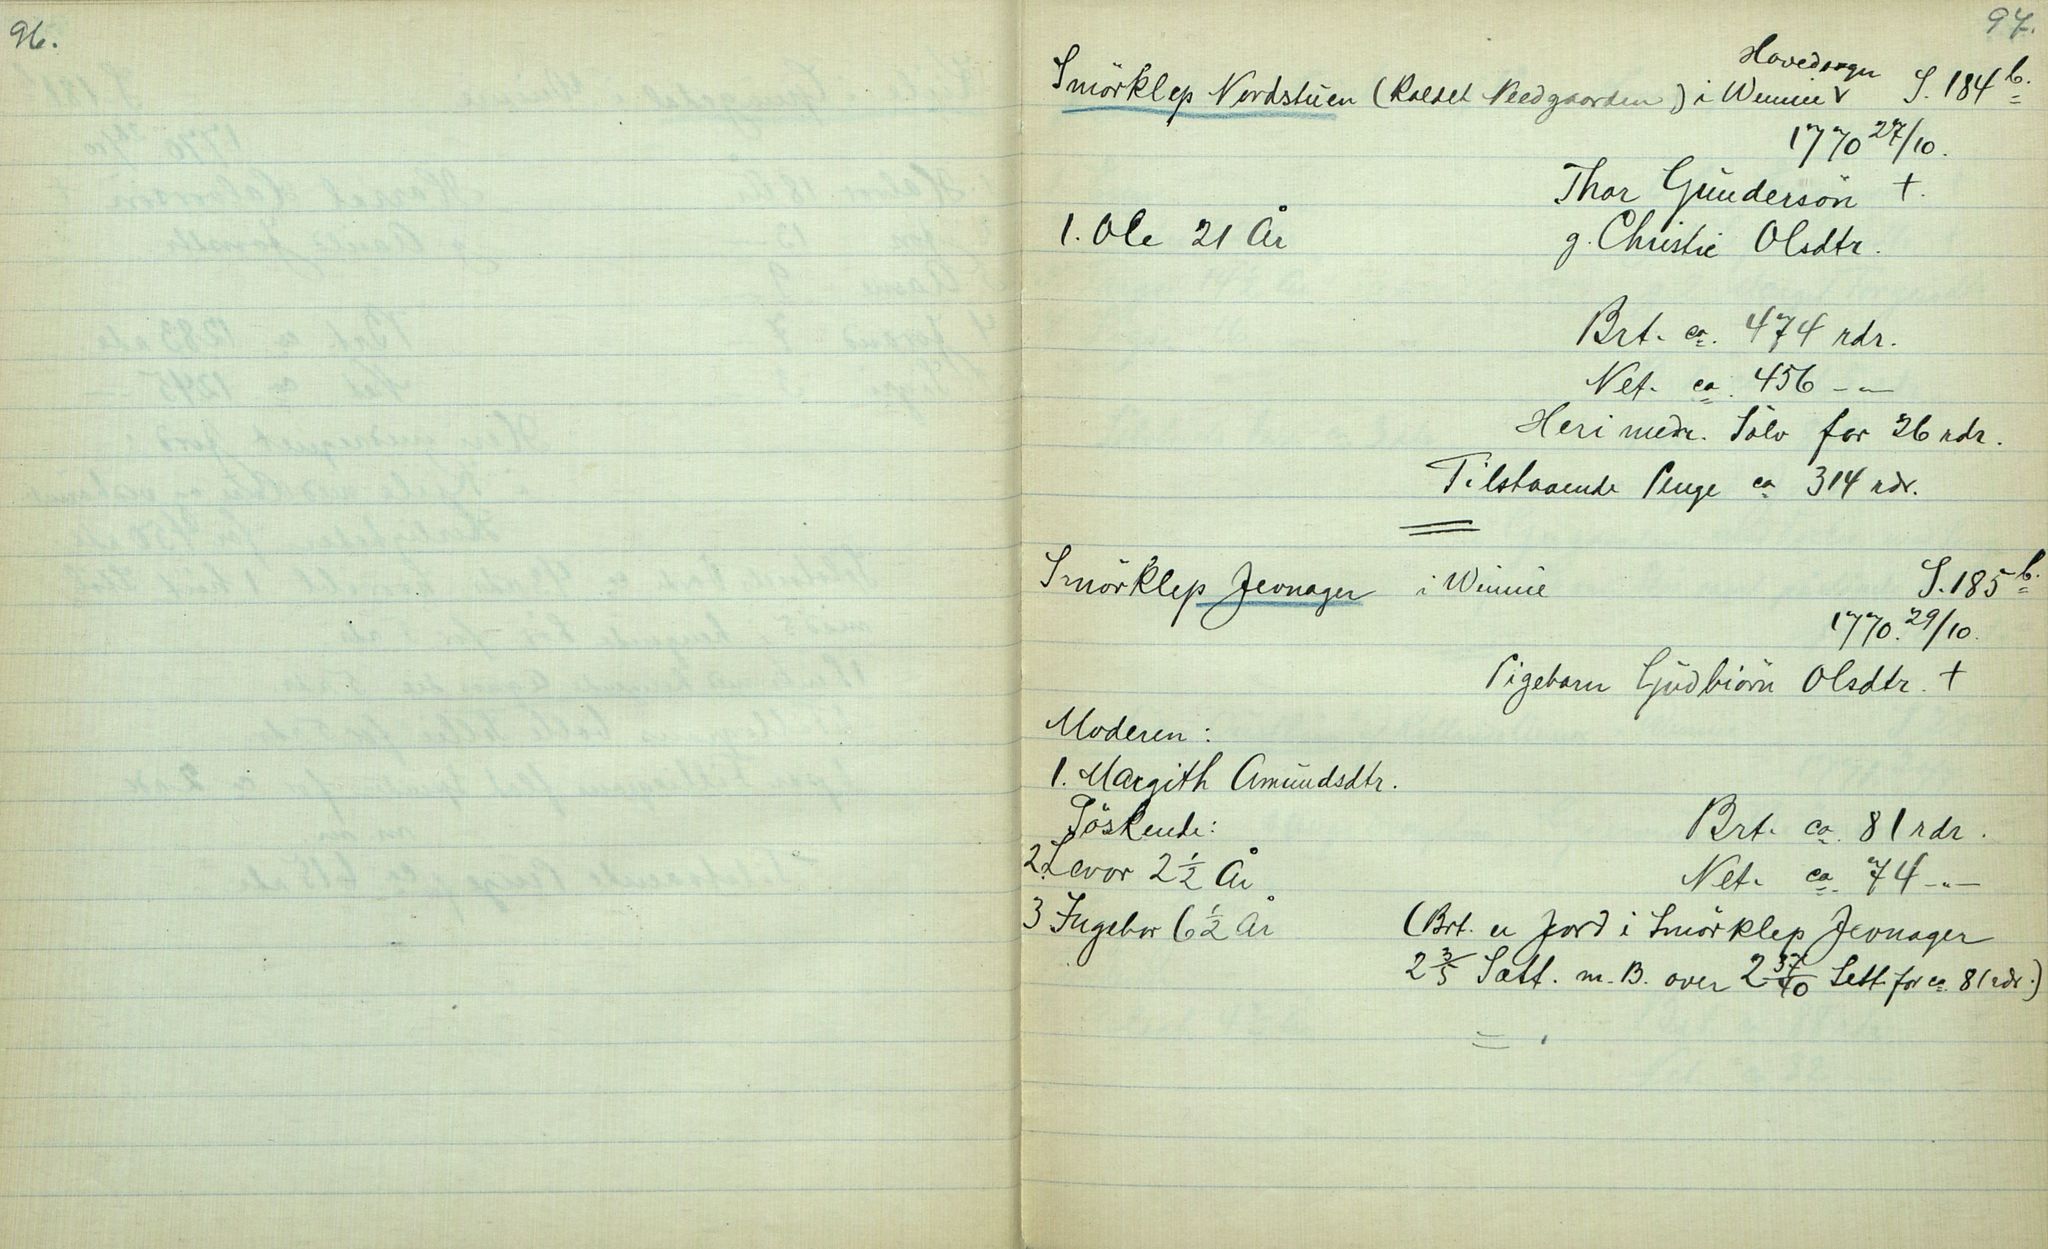 96.
97.
Hovedsogn
Smörklep Nordstuen (kaldet Needgaarden) i Winnie V S. 184 b.
1770 27/10.
Thor Gundersön †.
1. Ole 21 År
g. Christie Olsdtr.
Brt. ca. 474 rdr.
Net. ca. 456 -"-
Heri medr. Sölv for 26 rdr.
Tilstaaende Penge ca 314 rdr.
Smörklep Jevnager i Winnie S. 185 b.
1770. 29/10.
Pigebarn Gudbiörn Olsdtr. †
Moderen:
1. Margith Amundsdtr.
Söskende:
Brt. ca. 81 rdr.
2. Levor 2 1/2 År
Net. ca. 74 -"-
3 Ingebor 6 1/2 År
(Brt. er Jord i Smörklep Jevnager
2 3/5 Sætt. m. B. over 2 37/40 Sett. for ca. 81 rdr.)